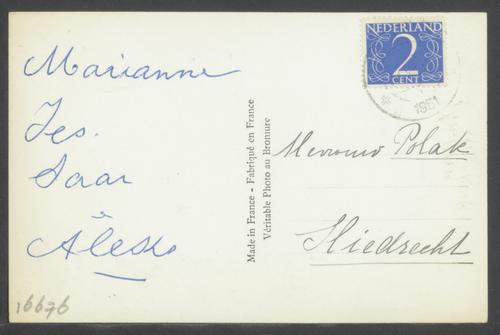 Marianne
Jes.
Saar
Mevrouw Polak
Sliedrecht
Made in France - Fabriqué en France
Véritable Photo au Bromure
NEDERLAND
2
CENT
1951
16676